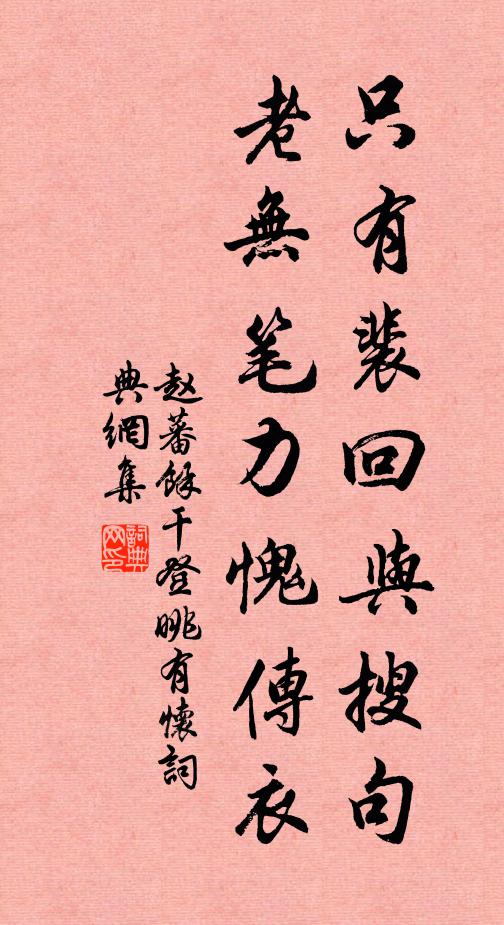 只有裴回與搜句
老無笔力愧傳衣
赵蕃餘干登眺有懷詞
典網集
詞典
网印